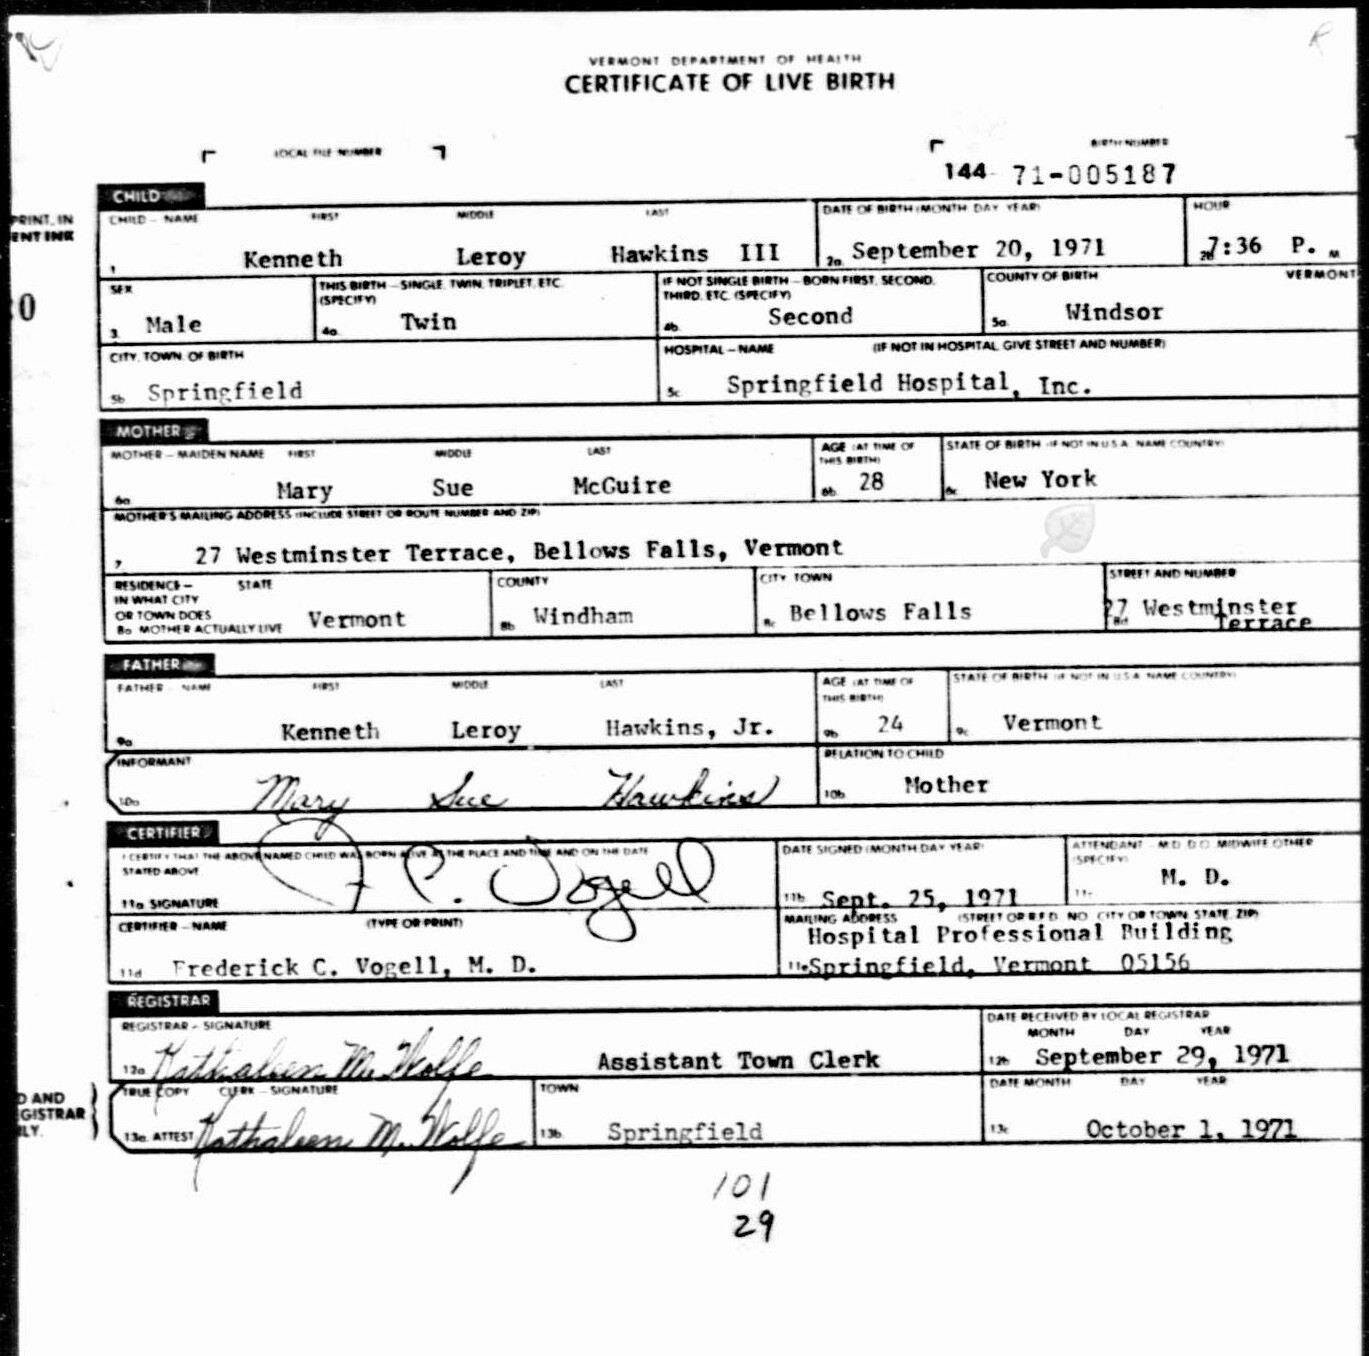 VERMONT DEPARTMENT OF HEALTH
CERTIFICATE OF LIVE BIRTH
LOCAL FILE NUMBER
BIRTH NUMBER
144- 71-005187
CHILD
PRINT, IN
ENT INK
CHILD - NAME FIRST MIDDLE LAST
1 Kenneth Leroy Hawkins III
DATE OF BIRTH (MONTH DAY YEAR)
2a. September 20, 1971
HOUR
2b 7:36 P. M
SEX
3. Male
THIS BIRTH - SINGLE, TWIN, TRIPLET, ETC.
(SPECIFY)
4a. Twin
IF NOT SINGLE BIRTH - BORN FIRST, SECOND,
THIRD, ETC. (SPECIFY)
4b. Second
COUNTY OF BIRTH VERMONT
5a. Windsor
CITY, TOWN, OF BIRTH
5b. Springfield
HOSPITAL - NAME (IF NOT IN HOSPITAL, GIVE STREET AND NUMBER)
5c. Springfield Hospital, Inc.
MOTHER
MOTHER - MAIDEN NAME FIRST MIDDLE LAST
6a. Mary Sue McGuire
AGE (AT TIME OF
THIS BIRTH)
6b. 28
STATE OF BIRTH (IF NOT IN U.S.A. NAME COUNTRY)
6c. New York
MOTHER'S MAILING ADDRESS (INCLUDE STREET OR ROUTE NUMBER AND ZIP)
7. 27 Westminster Terrace, Bellows Falls, Vermont
RESIDENCE - STATE
IN WHAT CITY
OR TOWN DOES
8a MOTHER ACTUALLY LIVE Vermont
COUNTY
8b. Windham
CITY TOWN
8c. Bellows Falls
STREET AND NUMBER
27 Westminster
8d Terrace
FATHER
FATHER - NAME FIRST MIDDLE LAST
9a. Kenneth Leroy Hawkins, Jr.
AGE (AT TIME OF
THIS BIRTH)
9b. 24
STATE OF BIRTH (IF NOT IN U.S.A. NAME COUNTRY)
9c. Vermont
INFORMANT
10a Mary Sue Hawkins
RELATION TO CHILD
10b. Mother
CERTIFIER
I CERTIFY THAT THE ABOVE NAMED CHILD WAS BORN ALIVE AT THE PLACE AND TIME AND ON THE DATE
STATED ABOVE
11a SIGNATURE
C. Vogell
DATE SIGNED (MONTH DAY YEAR)
11b. Sept. 25, 1971
ATTENDANT - M.D. D.O. MIDWIFE OTHER
(SPECIFY)
11c M. D.
CERTIFIER - NAME (TYPE OR PRINT)
11d Frederick C. Vogell, M. D.
MAILING ADDRESS (STREET OR R.F.D. NO. CITY OR TOWN, STATE, ZIP)
Hospital Professional Building
11e Springfield, Vermont 05156
REGISTRAR
REGISTRAR - SIGNATURE
12a Kathaleen M. Wolfe Assistant Town Clerk
DATE RECEIVED BY LOCAL REGISTRAR
MONTH DAY YEAR
12b September 29, 1971
D AND
GISTRAR
LY.
TRUE COPY CLERK - SIGNATURE
13a. ATTEST Kathaleen M. Wolfe
TOWN
13b. Springfield
DATE MONTH DAY YEAR
13c October 1, 1971
101
29